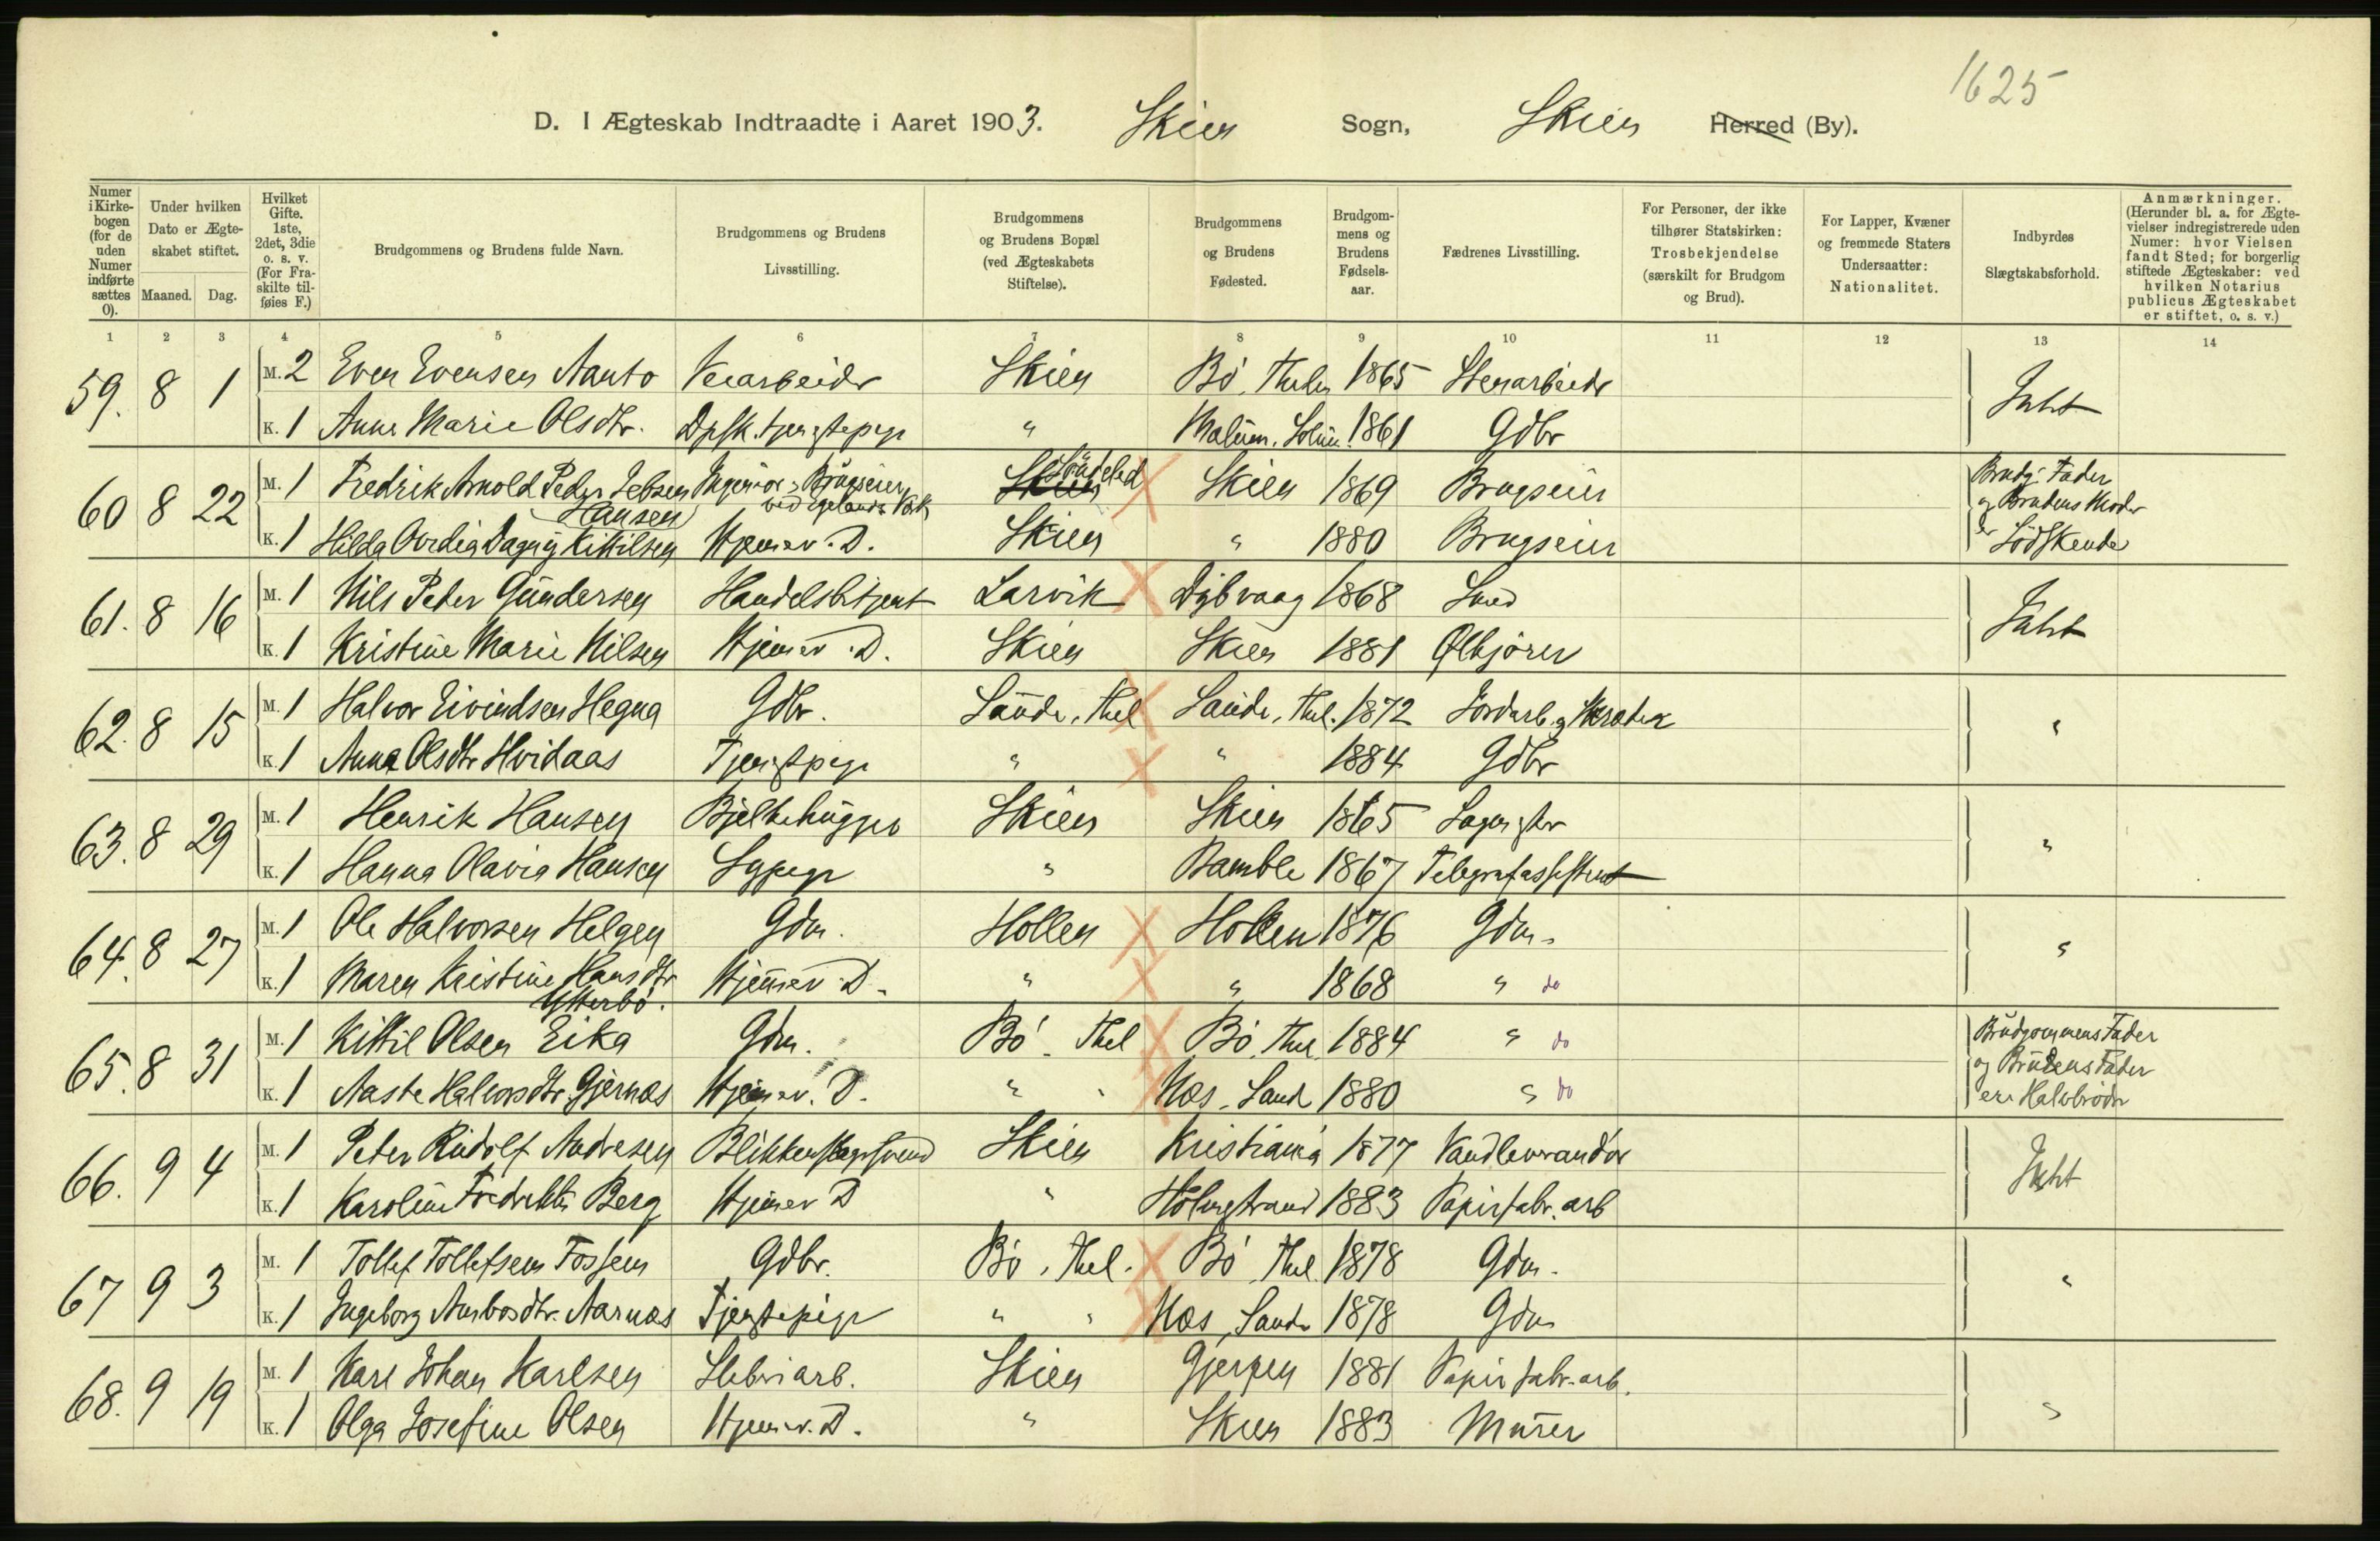 1625
D. I Ægteskab Indtraadte i Aaret 1903. Skien Sogn, Skien Herred (By).
Numer i Kirke-bogen (for de uden Numer indførte sættes 0).
Under hvilken Dato er Ægte-skabet stiftet. Maaned. Dag.
Hvilket Gifte. 1ste, 2det, 3die o. s. v. (For Fra-skilte til-føies F.)
Brudgommens og Brudens fulde Navn.
Brudgommens og Brudens Livsstilling.
Brudgommens og Brudens Bopæl (ved Ægteskabets Stiftelse).
Brudgommens og Brudens Fødested.
Brudgom-mens og Brudens Fødsels-aar.
Fædrenes Livsstilling.
For Personer, der ikke tilhører Statskirken: Trosbekjendelse (særskilt for Brudgom og Brud).
For Lapper, Kvæner og fremmede Staters Undersaatter: Nationalitet.
Indbyrdes Slægtskabsforhold.
Anmærkninger. (Herunder bl. a. for Ægte-vielser indregistrerede uden Numer: hvor Vielsen fandt Sted; for borgerlig stiftede Ægteskaber: ved hvilken Notarius publicus Ægteskabet er stiftet, o. s. v.)
1 2 3 4 5 6 7 8 9 10 11 12 13 14
59. 8 1 M. 2 Even Evensen Veiarbeidr Skien Bö, 1865 Stenarbeidr Intet
K. 1 Anne Marie Olsdtr. " Melum, Solum 1861 Gdbr
60 8 22 M. 1 Fredrik Arnold Peder Jebsen Hansen Ingeniör Skien Söndeled Skien 1869 Brugseier Brudg. Fader og Brudens Moder er Södskende
K. 1 Hilda Dagny Kittilsen Hjemev. D. Skien " 1880 Brugseier
61. 8 16 M. 1 Nils Peter Gundersen Handelsbetjent Larvik Dybvaag 1868 Smed Intet
K. 1 Kristine Marie Nilsen Hjemev. D. Skien Skien 1881 Ølkjörer
62. 8 15 M. 1 Halvor Eivindsen Hegna Gdbr. Saude, Thel Saude, Thel. 1872 "
K. 1 Anna Olsdtr Hvidaas Tjenestpige " " 1884 Gdbr
63. 8 29 M. 1 Henrik Hansen Bjelkehugger Skien Skien 1865 "
K. 1 Hanna Olavia Hansen Sypige " Bamble 1867 Telegrafassistent
64. 8 27 M. 1 Ole Halvorsen Helgen Gdm. Hollen Hollen 1876 Gdm. "
K. 1 Maren Kristine Hansdtr Ytterbö. Hjemmev. D. " " 1868 " do
65. 8 31 M. 1 Kittil Olsen Eika Gdm. Bö. Thel Bö, Thel. 1884 " do Brudgommens Fader og Brudens Fader ere Halvbrödre
K. 1 Aaste Halvorsdtr. Gjernæs Hjemev. D. " " Næs, Saude 1880 " do
66. 9 4 M. 1 Peter Rudolf Andresen Blikkenslagersvend Skien Kristiania 1877 Intet
K. 1 Karoline Fredrikke Berg Hjemev D " Holmestrand 1883 Papirfabr. arb
67 9 3 M. 1 Tollef Tollefsen Fossem Gdbr. Bö, Thel. Bö Thel. 1878 Gdm. "
K. 1 Ingeborg Aarnæs Tjenestepige " " Næs, Saude 1878 Gdm
68. 9 19 M. 1 Karl Johan Karlsen Sliberiarb. Skien Gjerpen 1881 Papirfabr. arb. "
K. 1 Olga Josefine Olsen Hjemev. D. " Skien 1883 Murer